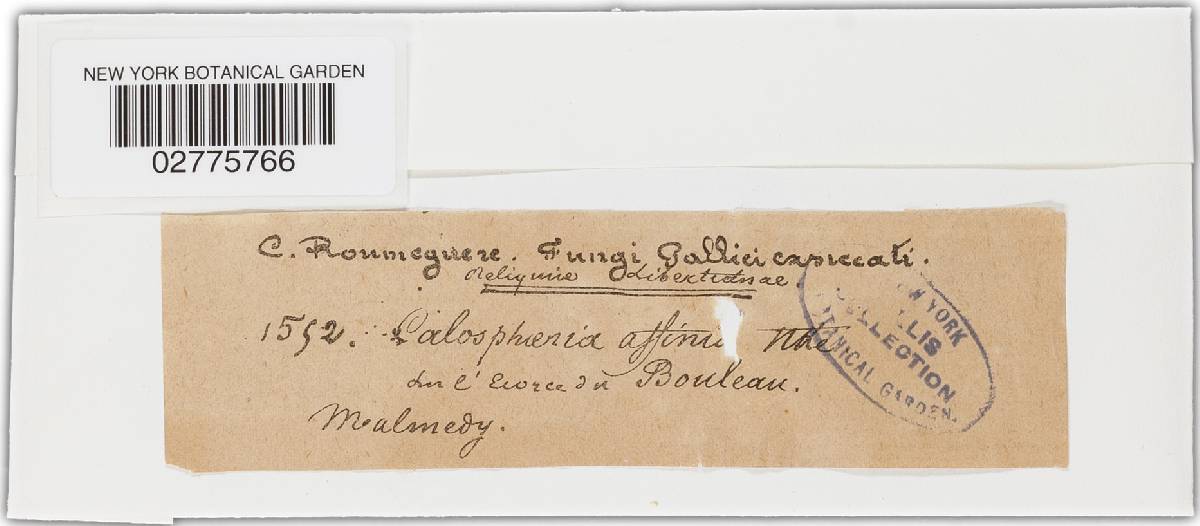 NEW YORK BOTANICAL GARDEN
02775766
C. Roumeguere. Fungi Gallici exsiccati.
Reliquiae Libertianae
1592. Calosphaeria affinis Nke
Sur l'Ecorce du Bouleau.
Malmedy.
NEW YORK
ELLIS
COLLECTION
BOTANICAL GARDEN.